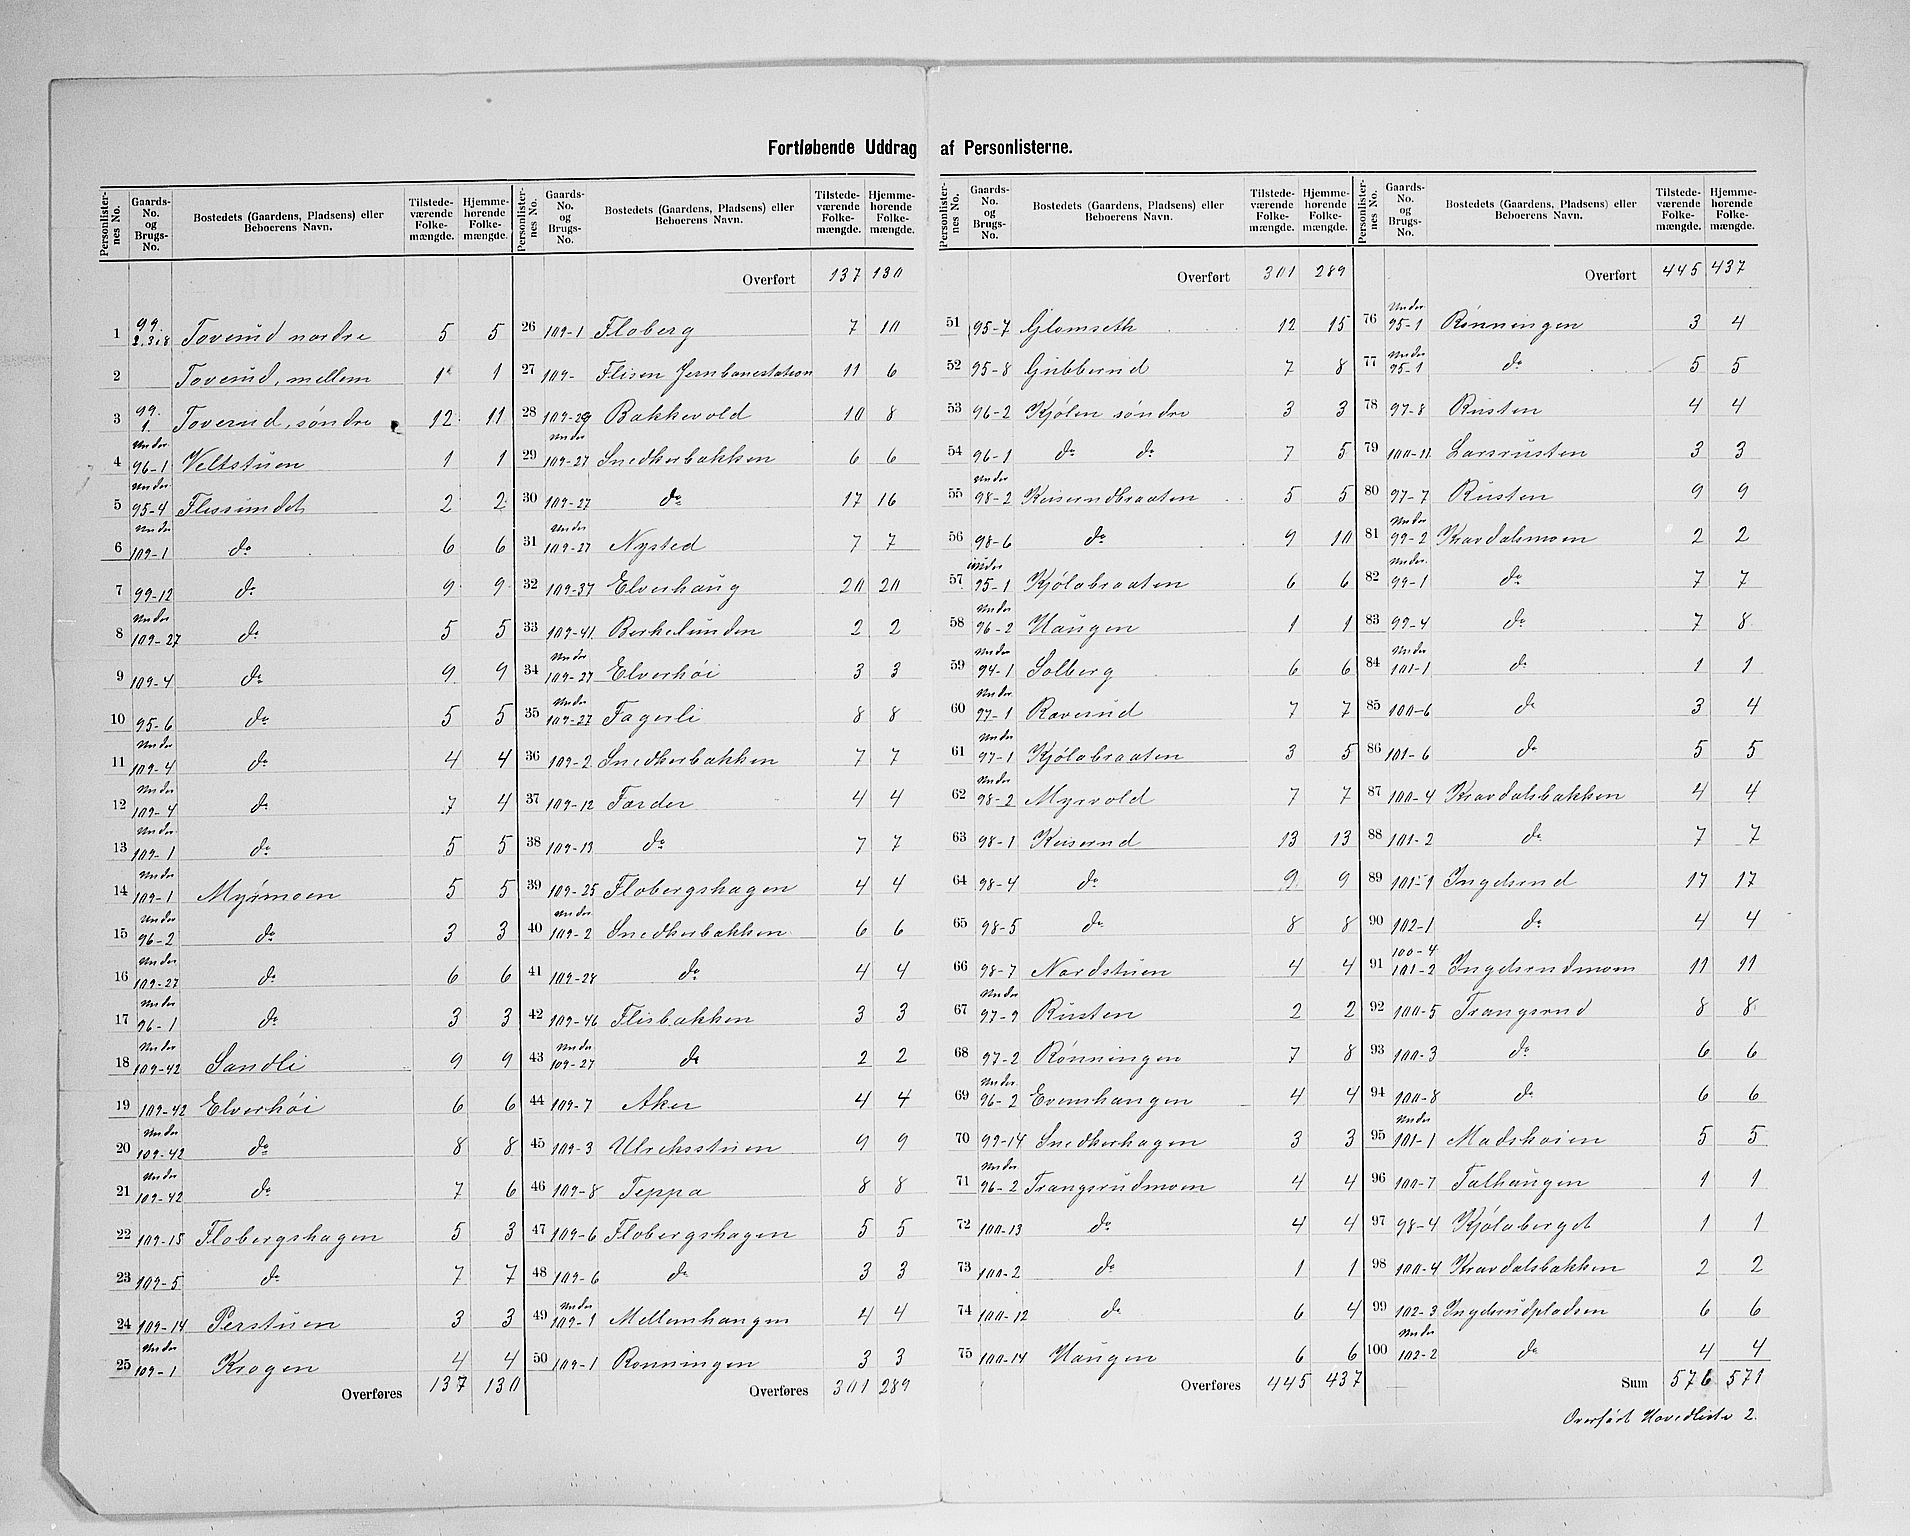 Fortløbende Uddrag af Personlisterne.
Personlisternes No. Gaards-No. og Brugs-No. Bostedets (Gaardens, Pladsens) eller Beboerens Navn. Tilstedeværende Folkemængde. Hjemmehørende Folkemængde.
1 99. 2.3.8 Toverud nordre 5 5
2 Toverud, mellem 1 1
3 99. 1. Toverud, søndre 12 11
4 Under 96-1 Veltstuen 1 1
5 Under 95-4 Flissundet 2 2
6 Under 109-1 do 6 6
7 99-12 do 9 9
8 Under 109-27 do 5 5
9 109-4 do 9 9
10 95-6 do 5 5
11 Under 109-4 do 4 4
12 Under 109-4 do 7 4
13 Under 109-1 do 5 5
14 Under 109-1 Myrmoen 5 5
15 Under 96-2 do 3 3
16 Under 109-27 do 6 6
17 Under 96-1 do 3 3
18 Under 109-42 Sandli 9 9
19 109-42 Elverhøi 6 6
20 Under 109-42 do 8 8
21 Under 109-42 do 7 6
22 109-15 Flobergshagen 5 3
23 109-5 do 7 7
24 109-14 Perstuen 3 3
25 Under 109-1 Krogen 4 4
Overføres 137 130
Personlisternes No. Gaards-No. og Brugs-No. Bostedets (Gaardens, Pladsens) eller Beboerens Navn. Tilstedeværende Folkemængde. Hjemmehørende Folkemængde.
Overført 137 130
26 109-1 Floberg 7 10
27 109- Flisen Jernbanestation 11 6
28 109-29 Bakkevold 10 8
29 Under 109-27 Snedkerbakken 6 6
30 109-27 do 17 16
31 Under 109-27 Nysted 7 7
32 109-37 Elverhaug 20 20
33 109-41 Berkelunden 2 2
34 Under 109-27 Elverhøi 3 3
35 Under 109-27 Fagerli 8 8
36 109-2 Snedkerbakken 7 7
37 109-12 Farder 4 4
38 109-13 do 7 7
39 109-25 Flobergshagen 4 4
40 Under 109-2 Snedkerbakken 6 6
41 109-28 do 4 4
42 109-46 Flisbakken 3 3
43 Under 109-27 do 2 2
44 109-7 Aker 4 4
45 109-3 Ulrcksstuen 9 9
46 109-8 Teppa 8 8
47 109-6 Flobergshagen 5 5
48 109-6 do 3 3
49 Under 109-1 Mellemhangen 4 4
50 109-1 Rønningen 3 3
Overføres 301 289
Personlisternes No. Gaards-No. og Brugs-No. Bostedets (Gaardens, Pladsens) eller Beboerens Navn. Tilstedeværende Folkemængde. Hjemmehørende Folkemængde.
Overført 301 289
51 95-7 Glomseth 12 15
52 95-8 Gubberud 7 8
53 96-2 Kjølen søndre 3 3
54 96-1 do do 7 5
55 Under 98-2 Keiserudbraaten 5 5
56 98-6 do 9 10
57. under 95-1 Kjølabraaten 6 6
58 Under 96-2 Haugen 1 1
59 Under 94-1 Solberg 6 6
60 Under 97-1 Raverud 7 7
61 Under 97-1 Kjølabraaten 3 5
62 Under 98-2 Myrvold 7 7
63 98-1 Keiserud 13 13
64 98-4 do 9 9
65 98-5 do 8 8
66 98-7 Nordstuen 4 4
67 Under 97-9 Rusten 2 2
68 97-2 Rønningen 7 8
69 Under 96-2 Evenshaugen 4 4
70 99-14 Snedkerhagen 3 3
71 Under 96-2 Trangsrudmoen 4 4
72 100-13 do 4 4
73 100-2 do 1 1
74 100-12 do 6 4
75 100-14 Haugen 6 6
Overføres 445 437
Personlisternes No. Gaards-No. og Brugs-No. Bostedets (Gaardens, Pladsens) eller Beboerens Navn. Tilstedeværende Folkemængde. Hjemmehørende Folkemængde.
Overført 445 437
76 Under 95-1 Rønningen 3 4
77 Under 95-1 do 5 5
78 97-8 Rusten 4 4
79 100-11 Larsrusten 3 3
80 97-7 Rusten 9 9
81 Under 99-2 Kravdalsmoen 2 2
82 Under 99-1 do 7 7
83 99-4 do 7 8
84 Under 101-1 do 1 1
85 100-6 do 3 4
86 101-6 do 5 5
87 100-4 Kravdalsbakken 4 4
88 101-2 do 7 7
89 101-1 Ingelsrud 17 17
90 102-1 do 4 4
91 100-4 101-2 Ingelsrudmoen 11 11
92 100-5 Trangsrud 8 8
93 100-3 do 6 6
94 100-8 do 6 6
95 Under 101-1 Madshoien 5 5
96 100-7 Talhaugen 1 1
97 98-4 Kjølaberget 1 1
98 100-4 Kravdalsbakken 2 2
99 102-3 Ingelsrudpladsen 6 6
100 Under 102-2 do 4 4
Sum 576 571
Overført Hovedliste 2.